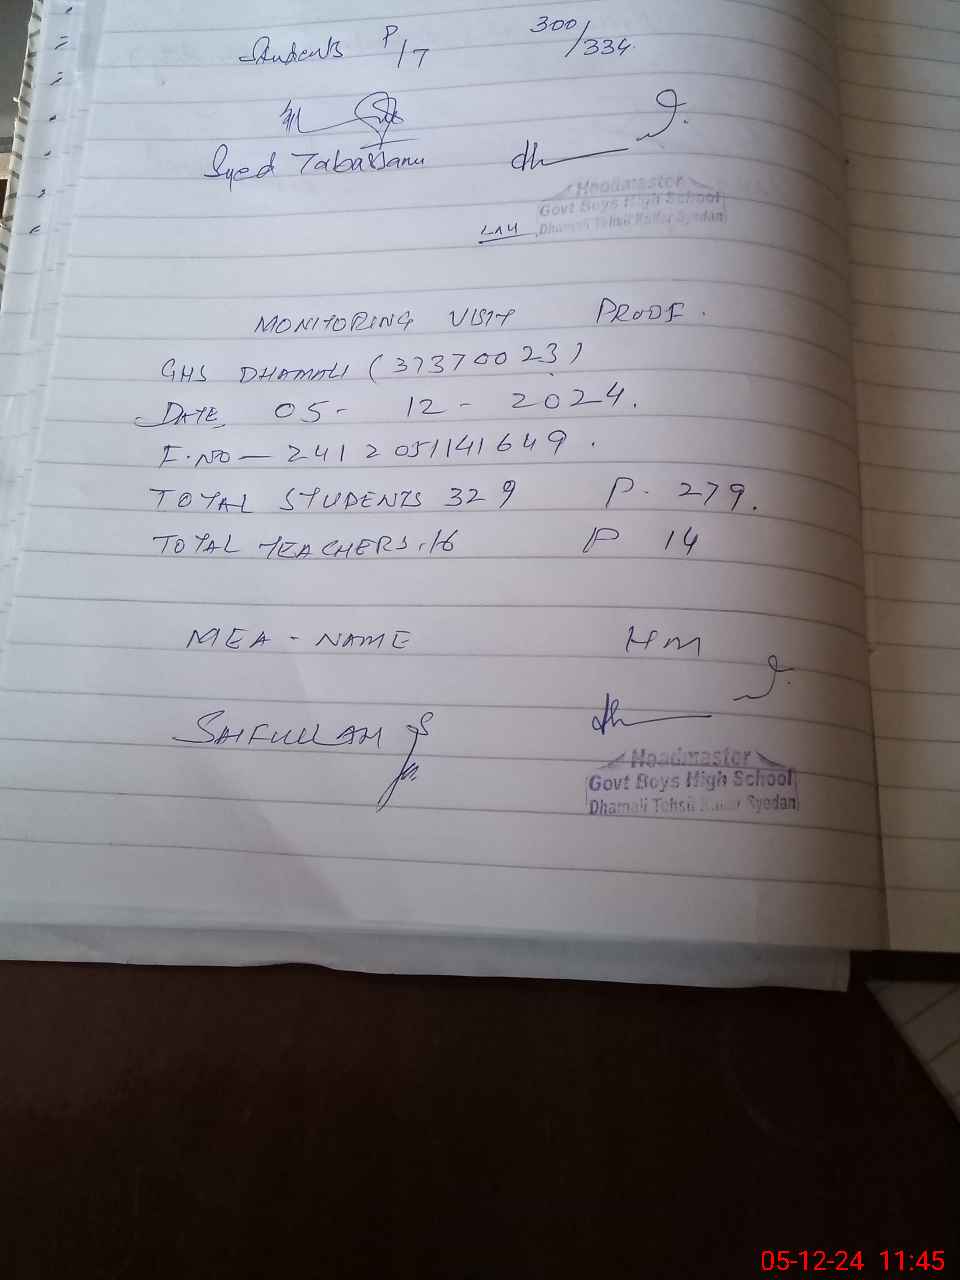 Students P/T 300/334
Syed Tabassam
Headmaster
Govt Boys High School
Dhamali Tehsil Kallar Syedan
MONITORING VISIT PROOF.
GHS DHAMALI (37370023)
DATE 05- 12 - 2024.
F.NO - 2412051141649.
TOTAL STUDENTS 329 P. 279.
TOTAL TEACHERS.16 P 14
MEA - NAME HM
SAIFULLAH
Headmaster
Govt Boys High School
Dhamali Tehsil Kallar Syedan
05-12-24 11:45